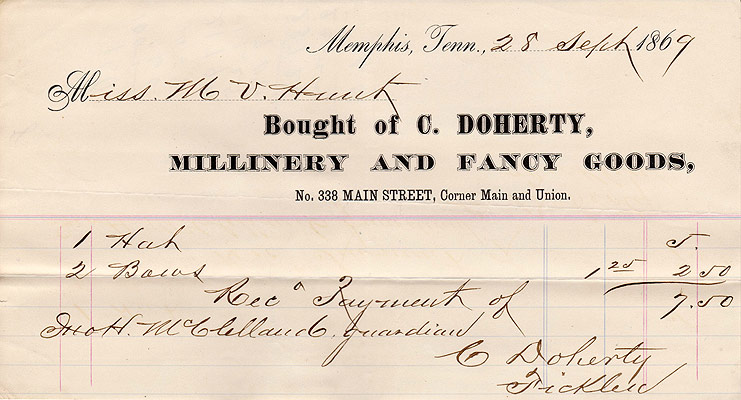 Memphis, Tenn., 28 Sept 1869
Miss. M V. Hunt
Bought of C. DOHERTY,
MILLINERY AND FANCY GOODS,
No. 338 MAIN STREET, Corner Main and Union.
1 Hat 5.
2 Bows 1 25 2 50
7.50
Recd Payment of
Jno H. McClelland, guardian
C Doherty